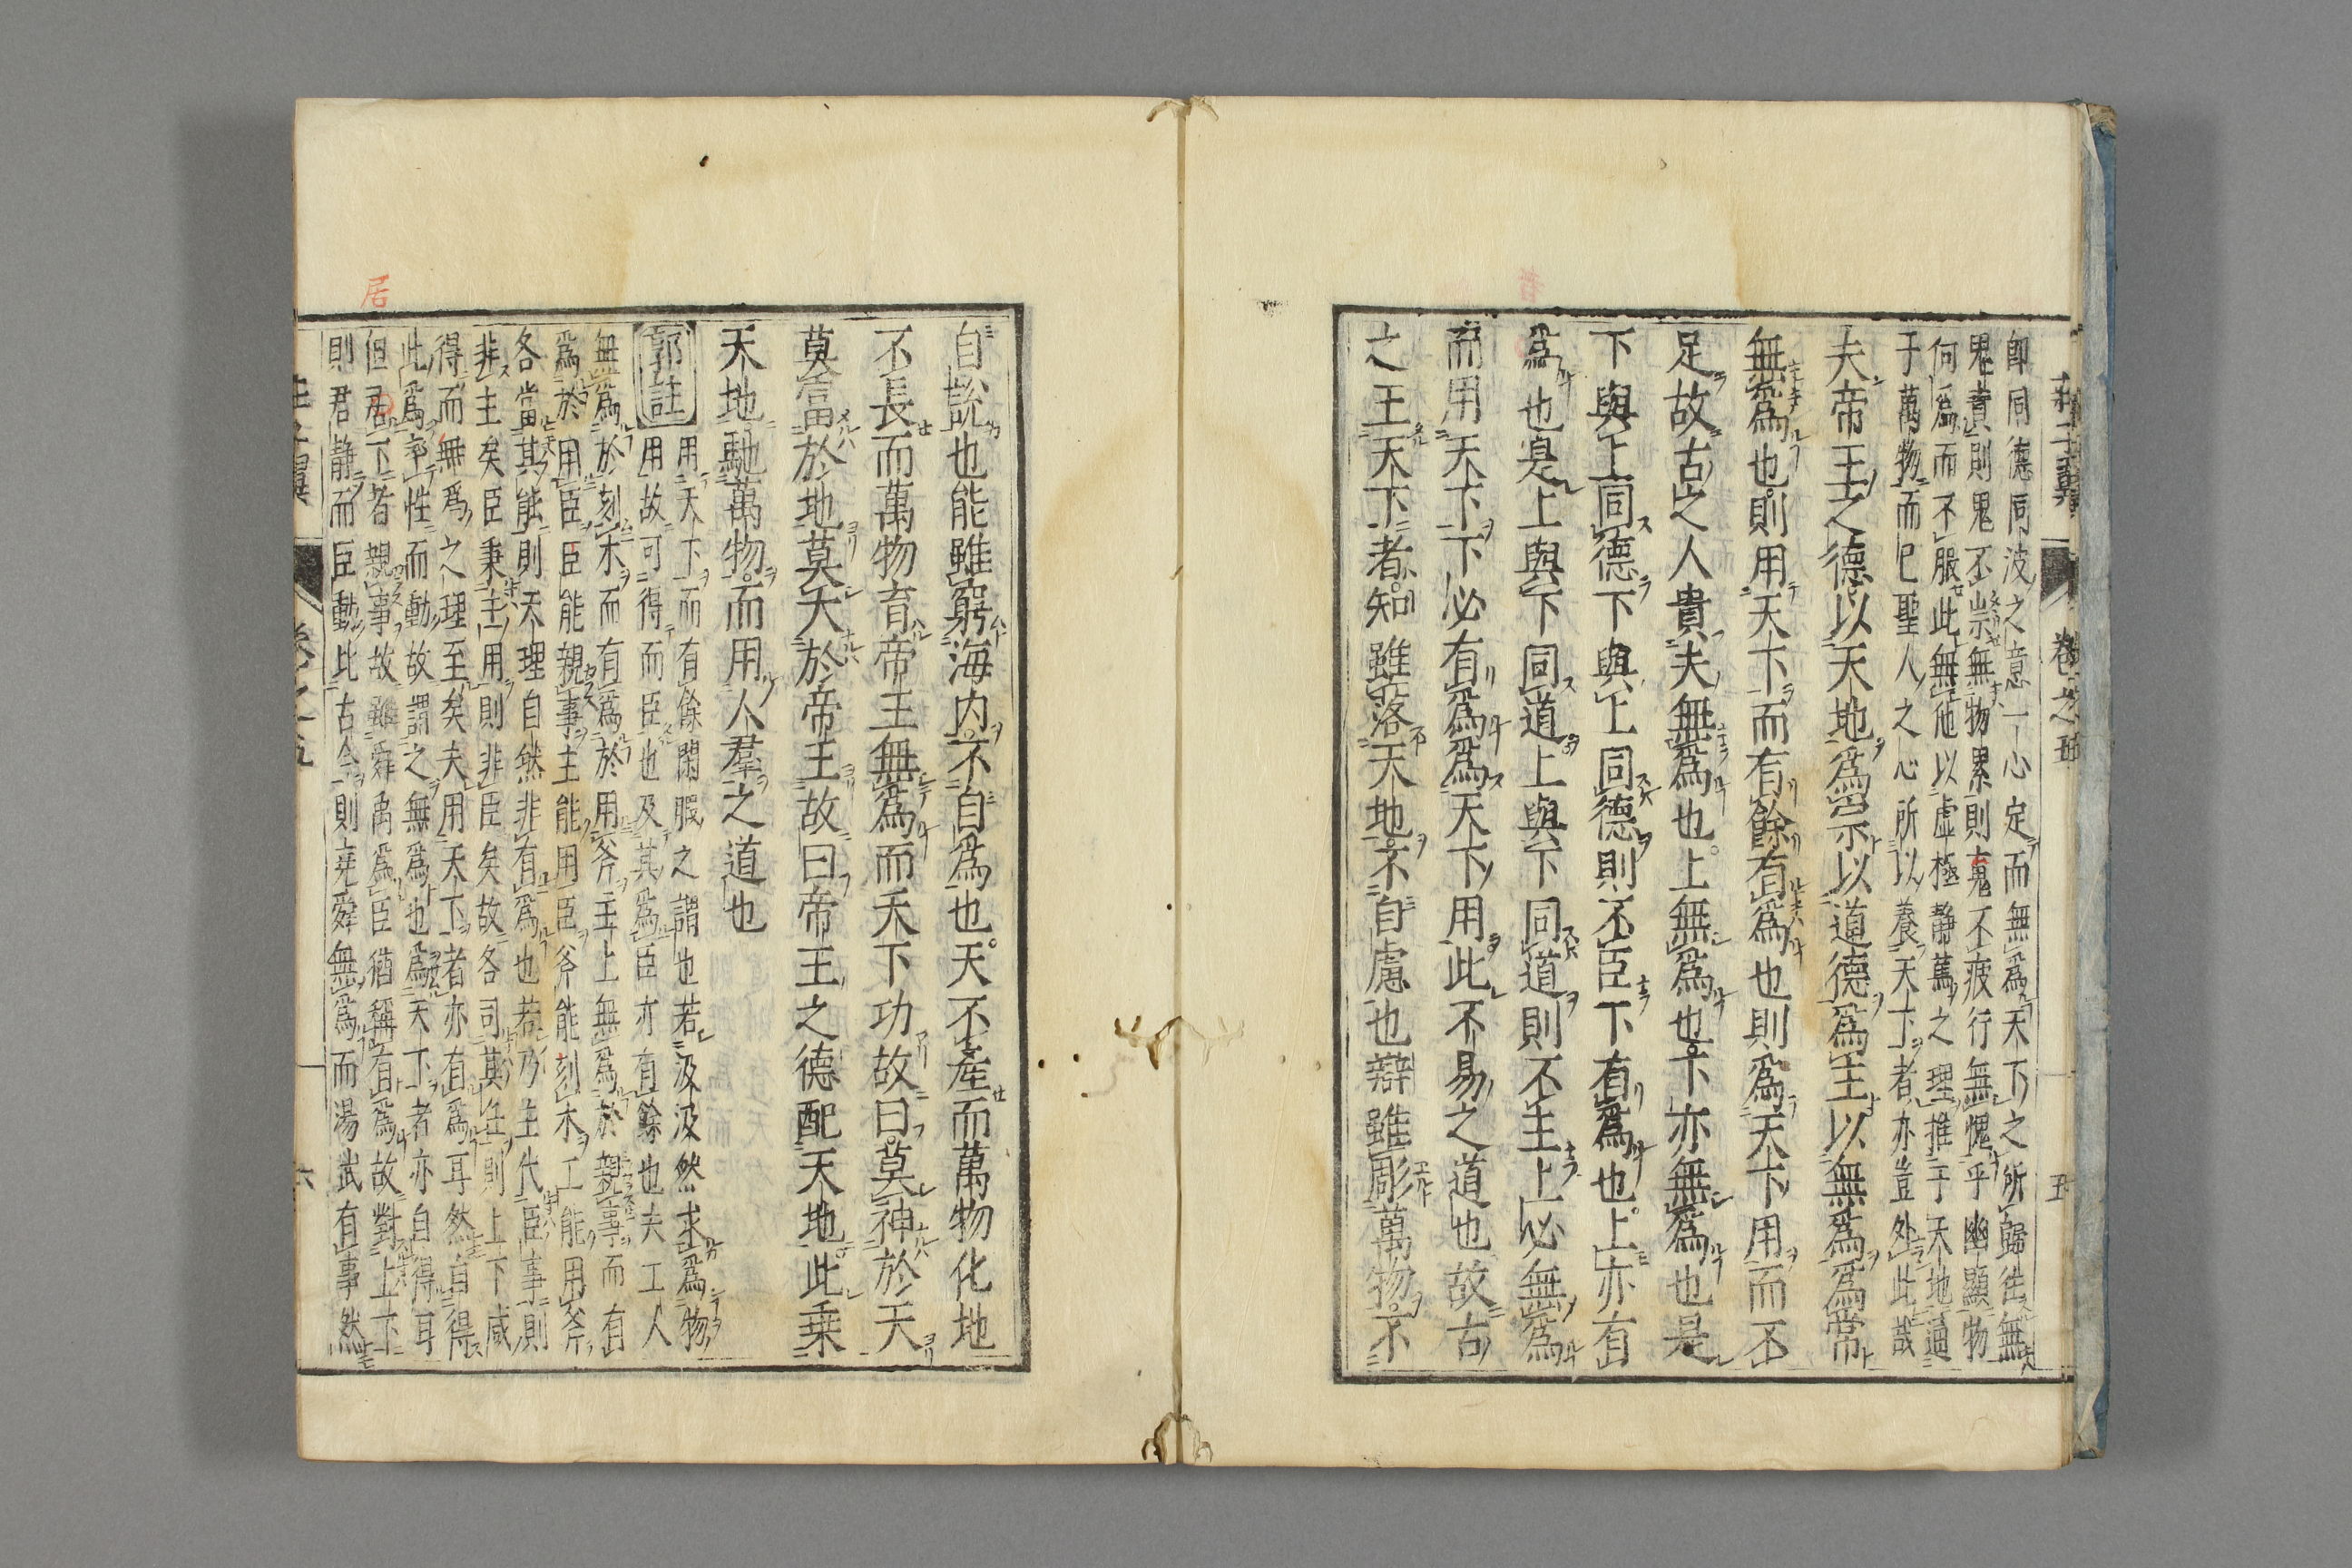 莊子翼 卷之五 五
即同德同波之意一心定而無爲天下之所歸徃無
鬼責則鬼不祟無物累則䰟不疲行無愧乎幽顯物
何爲而不服此無他以虚極静篤之理推于天地通
于萬物而巳聖人之心所以養天下者亦豈外此哉
夫帝王之德以天地爲宗以道德爲主以無爲爲常
無爲也則用天下而有餘有爲也則爲天下用而不
足故古之人貴夫無爲也上無爲也下亦無爲也是
下與上同德下與上同德則不臣下有爲也上亦有
爲也是上與下同道上與下同道則不主上必無爲
而用天下下必有爲爲天下用此不易之道也故古
之王天下者知雖落天地不自慮也辯雖彫萬物不
自說也能雖窮海内不自爲也天不産而萬物化地
不長而萬物育帝王無爲而天下功故曰莫神於天
莫富於地莫大於帝王故曰帝王之德配天地此乗
天地馳萬物而用人羣之道也
郭註
用天下而有餘閑暇之謂也若汲汲然求爲物
用故可得而臣也及其爲臣亦有餘也夫工人
無爲於刻木而有爲於用斧主上無爲於親事而有
爲於用臣臣能親事主能用臣斧能刻木工能用斧
各當其能則天理自然非有爲也若乃主代臣事則
非主矣臣秉主用則非臣矣故各司其任則上下咸
得而無爲之理至矣夫用天下者亦有爲耳然自得
此爲率性而動故謂之無爲也爲天下者亦自得耳
但君下者親事故雖舜禹爲臣猶稱有爲故對上下
則君静而臣動比古今則堯舜無爲而湯武有事然
居
六